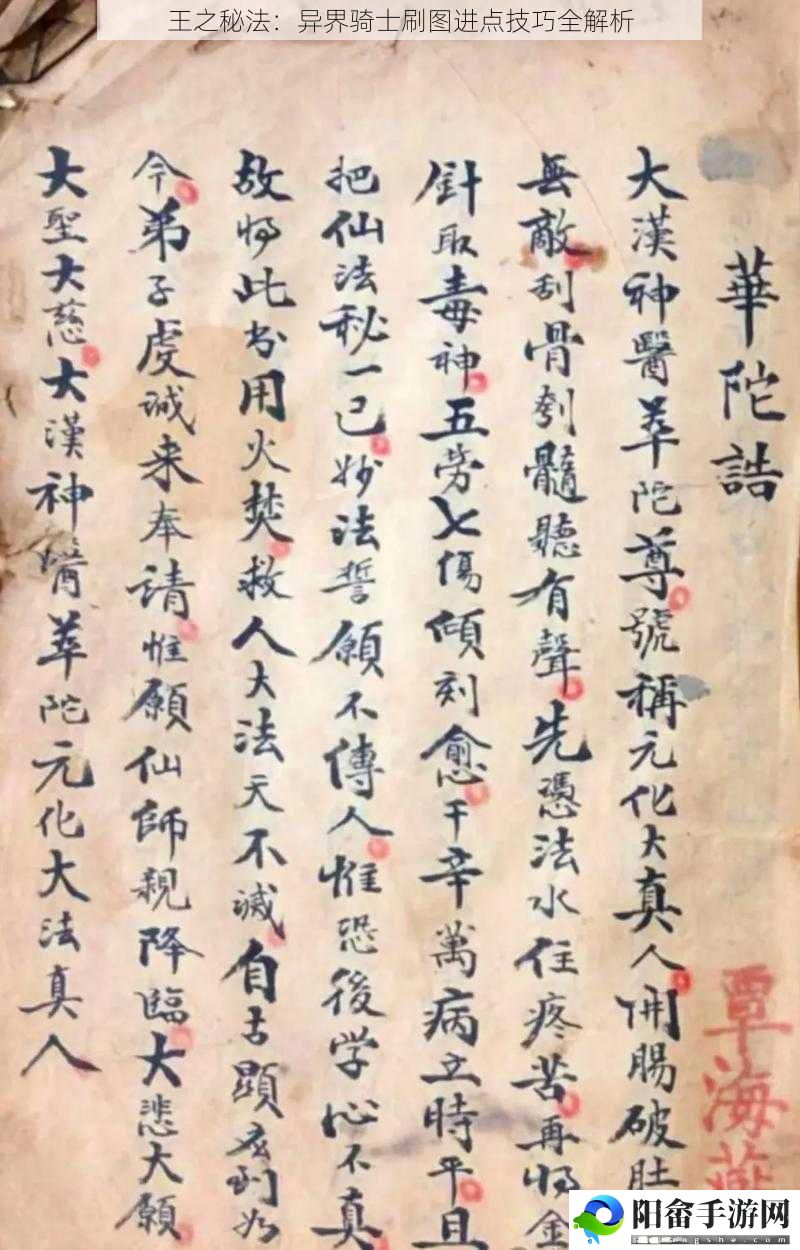 王之秘法：异界骑士刷图进点技巧全解析
華陀誥
大漢神醫華陀尊號稱元化大真人開腸破肚
無敵刮骨刳髓聽有聲先憑法水住疼苦再將金
針取毒神五劳七傷傾刻愈千辛萬病立時平且
把仙法秘一己妙法誓願不傳人惟恐後学心不真
故將此书用火焚救人大法天不滅自古顯应到如
今弟子虔诚来奉請惟願仙師親降臨大悲大願
大聖大慈大漢神醫華陀元化大法真人
覃海燕
阳畲手游网